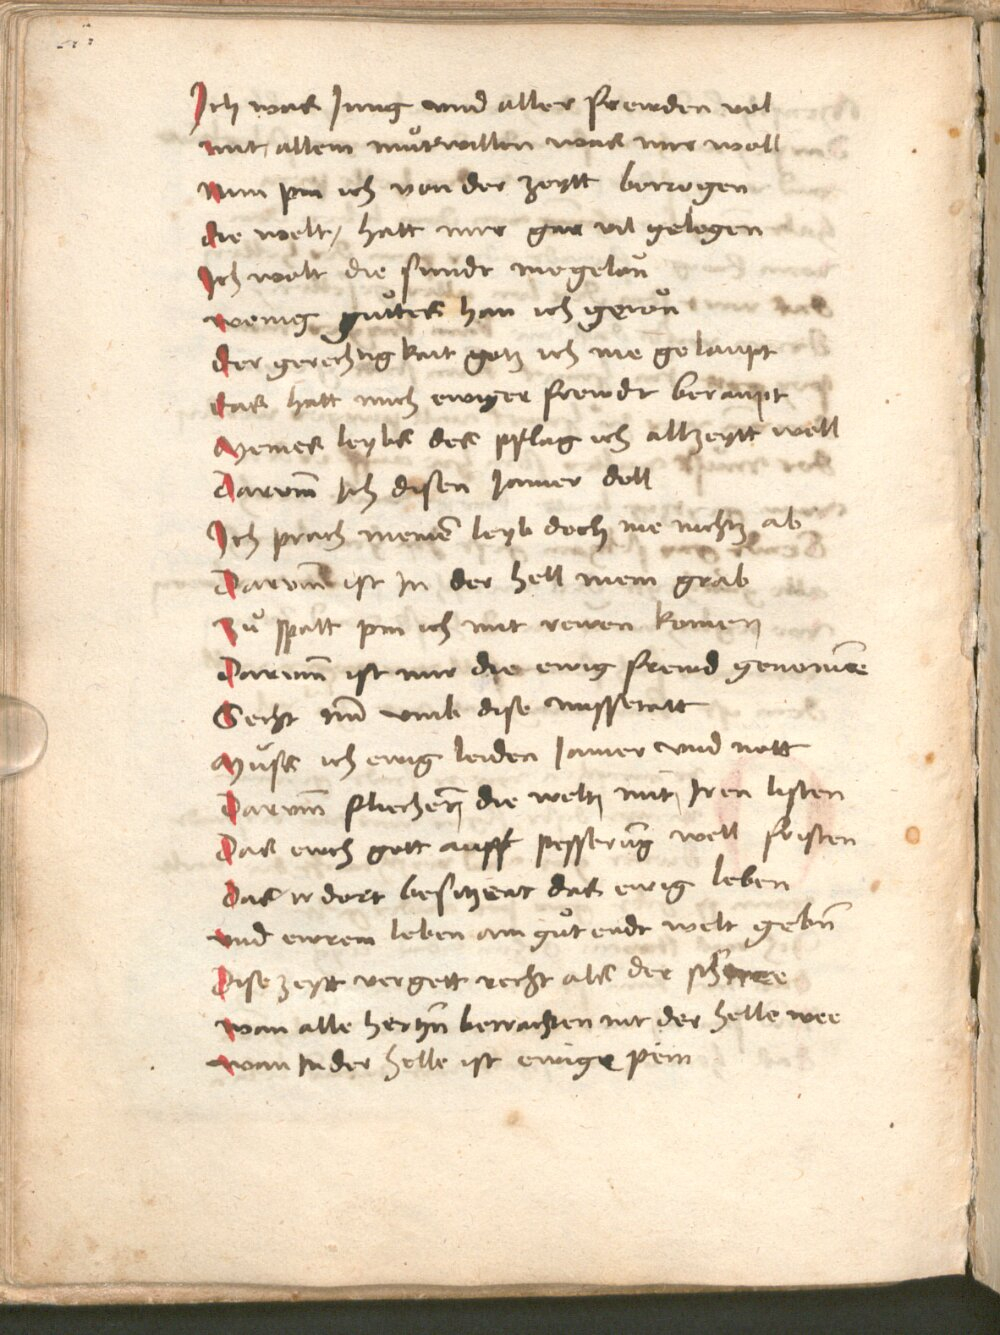 Ich was Jung vnd aller frewden vol
mit allem můtwillen was mir woll
Nun pin ich von der zeytt betrogen
die welt / hatt mir gar vil gelogen
Ich wolt die sundt nie gelan̄
wenig gůttes han ich geton̄
der gerechtigkait gotz ich nie gelaupt
das hatt mich ewiger frewdt beraupt
Meines leybs des pflag ich allzeytt woll
Darum̄ Ich disen Jamer doll
Ich prach meinē leyb doch nie nichtz ab
Darum̄ ist In der hell mein grab
Zů spatt pin ich mit rewen komen
Darum̄ ist mir die ewig frewd genomēe
Secht nū vmb dise missetatt
Můss ich ewig leiden Jamer vnd nott
Darum̄ fliechen̄ die welt mit Iren listen
Das euch gott auff pesserūg woll fristen
Das ir dort besitzent das ewig leben
vnd ewrem leben ain gůt endt welt gebn̄
Dise zeytt vergett recht als der schnee
wan alle hertzn̄ betrachten nit der helle wee
wan In der helle ist ewige pein